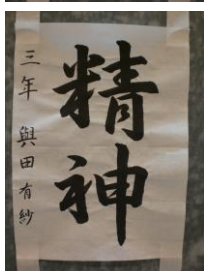 精神
三年 與田有紗